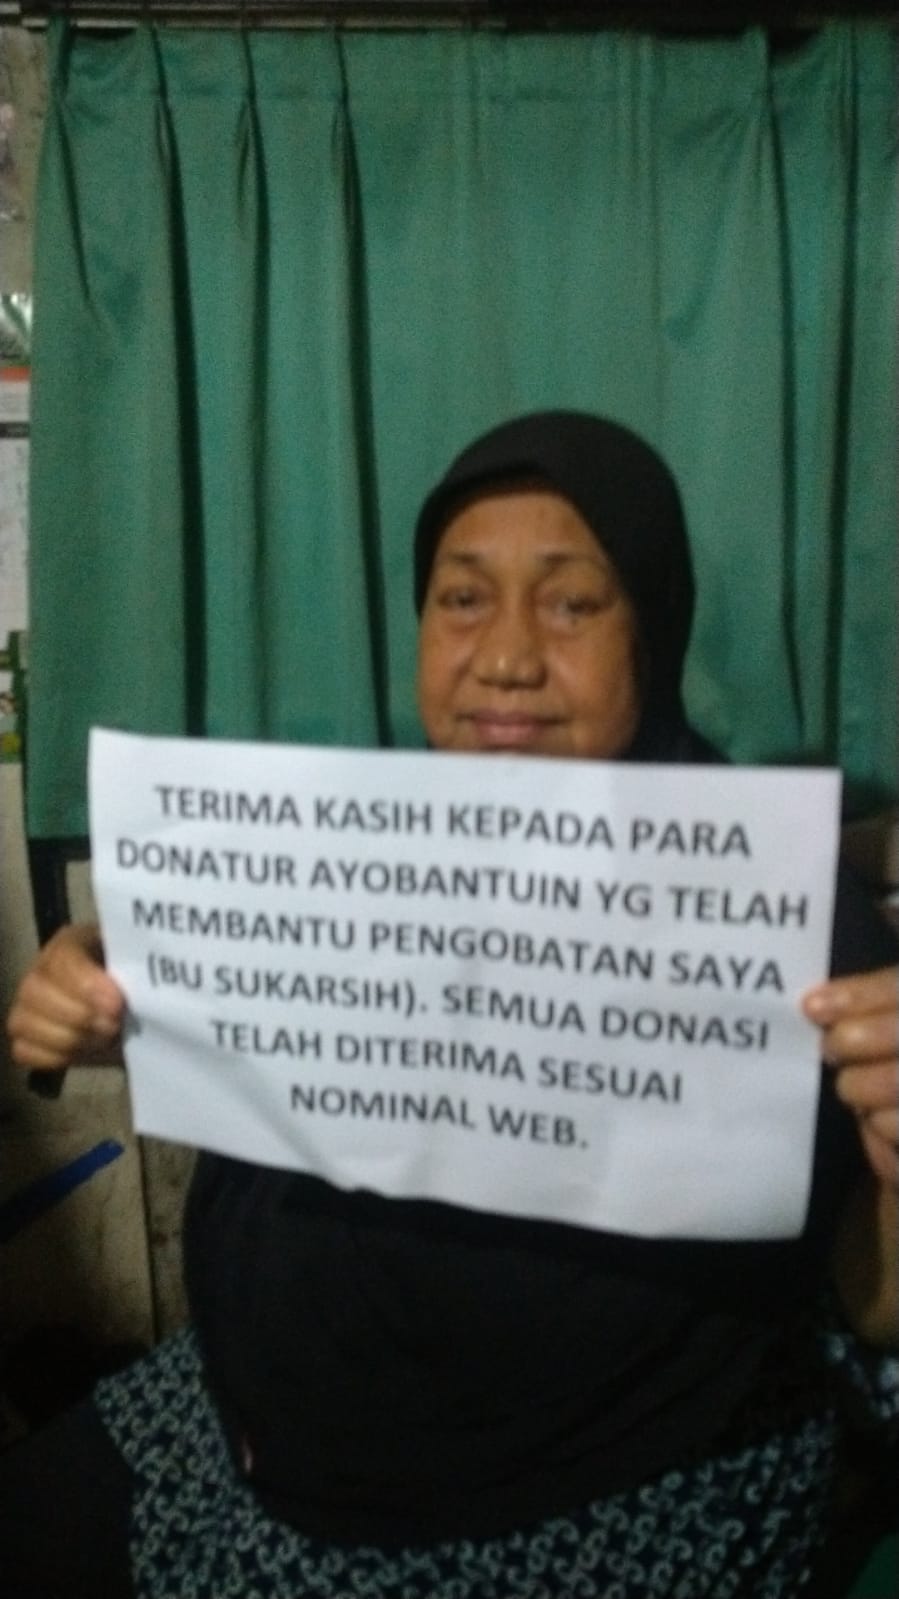 TERIMA KASIH KEPADA PARA
DONATUR AYOBANTUIN YG TELAH
MEMBANTU PENGOBATAN SAYA
(BU SUKARSIH). SEMUA DONASI
TELAH DITERIMA SESUAI
NOMINAL WEB.